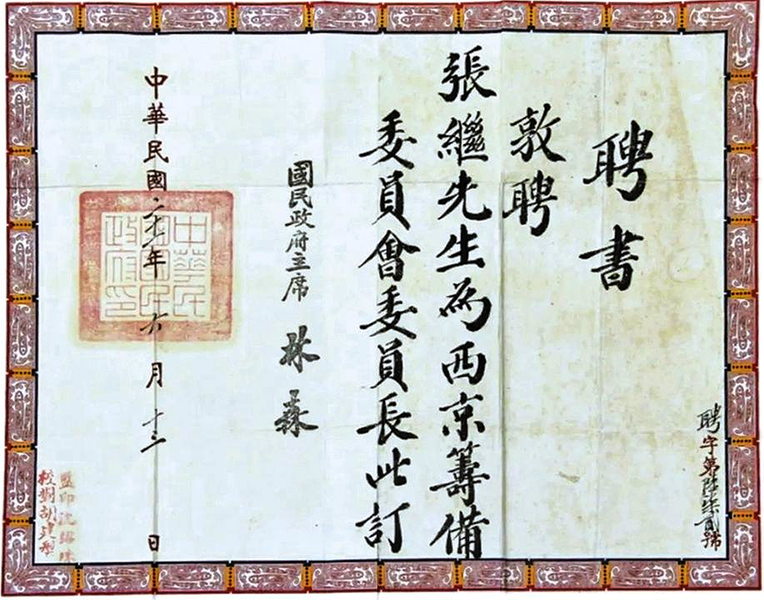 聘字第陸柒貳號
聘書
敦聘
張繼先生為西京籌備
委員會委員長此訂
國民政府主席 林森
中華民國 年六月十三日
中華民國國民政府印
監印沈
校對胡建